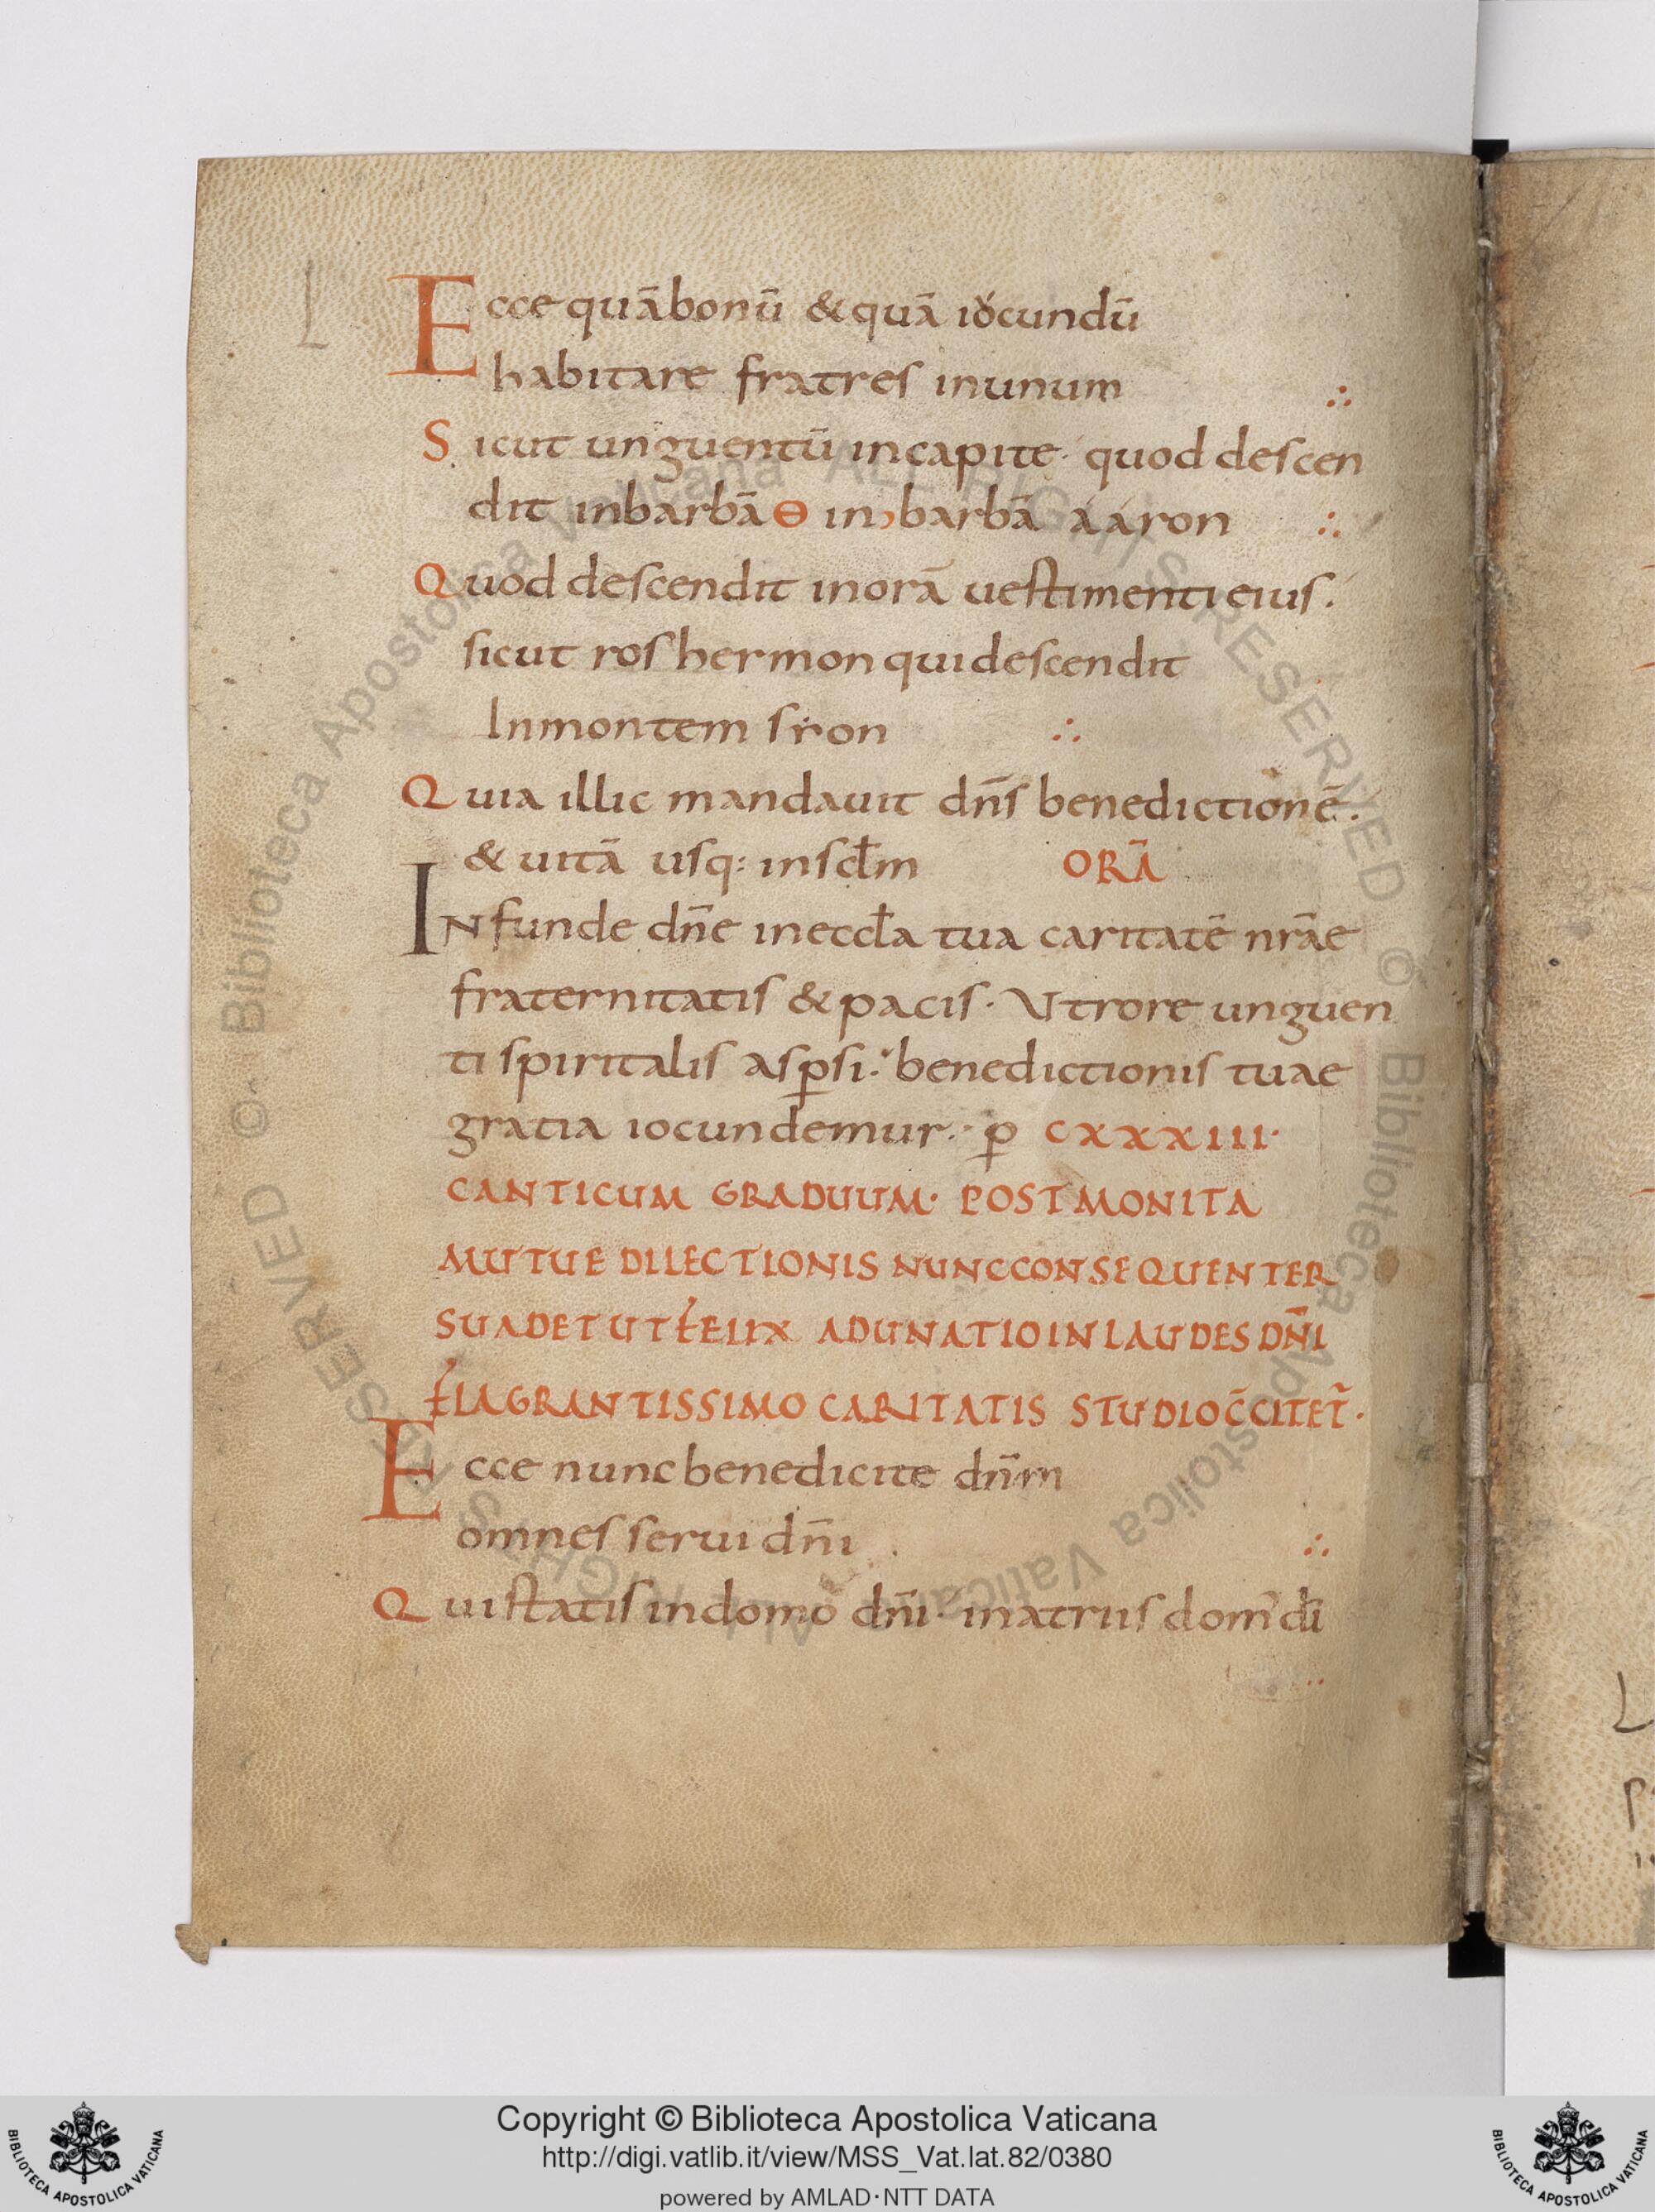 Ecce quā bonū & quā iocundū
habitare fratres in unum ∴
Sicut unguentū in capite· quod descen
dit in barbā ɵ in barbā aaron ∴
Quod descendit in orā uestimenti eius.
sicut ros hermon qui descendit
In montem sion ∴
Quia illic mandauit dn̄s benedictionē.
& uitā usq: in scl̄m ORĀ
INfunde dn̄e in eccl̄a tua caritatē nr̄ae
fraternitatis & pacis· Ut rore unguen
ti spiritalis asp̄si· benedictionis tuae
gratia iocundemur· p̄ CXXXIII·
CANTICUM GRADUUM· POST MONITA
MUTUE DILECTIONIS NUNC CONSEQUENTER
SUADET UT FELIX ADUNATIO IN LAUDES DN̄I
FLAGRANTISSIMO CARITATIS STUDIO C̄CITET̄·
Ecce nunc benedicite dn̄m
omnes serui dn̄i ∴
Qui statis in domo dn̄i· in atriis dom' dī
Copyright © Biblioteca Apostolica Vaticana
http://digi.vatlib.it/view/MSS_Vat.lat.82/0380
powered by AMLAD·NTT DATA
BIBLIOTECA APOSTOLICA VATICANA
BIBLIOTECA APOSTOLICA VATICANA
© Biblioteca Apostolica Vaticana ALL RIGHTS RESERVED
© Biblioteca Apostolica Vaticana ALL RIGHTS RESERVED